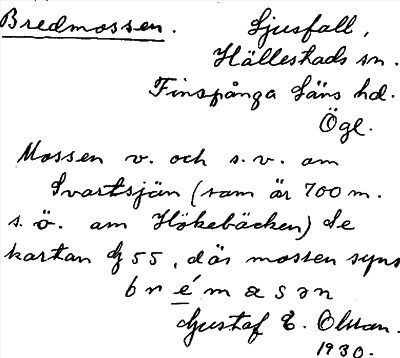 Bredmossen.
Ljusfall,
Hällestads sn.
Finspånga läns hd.
Ögl.
Mossen v. och s.v. om
Svartsjön (som är 700 m.
s.ö. om Hökebäcken) Se
kartan 55, där mossen syns
brémasən
Gustaf E. Olsson.
1930.